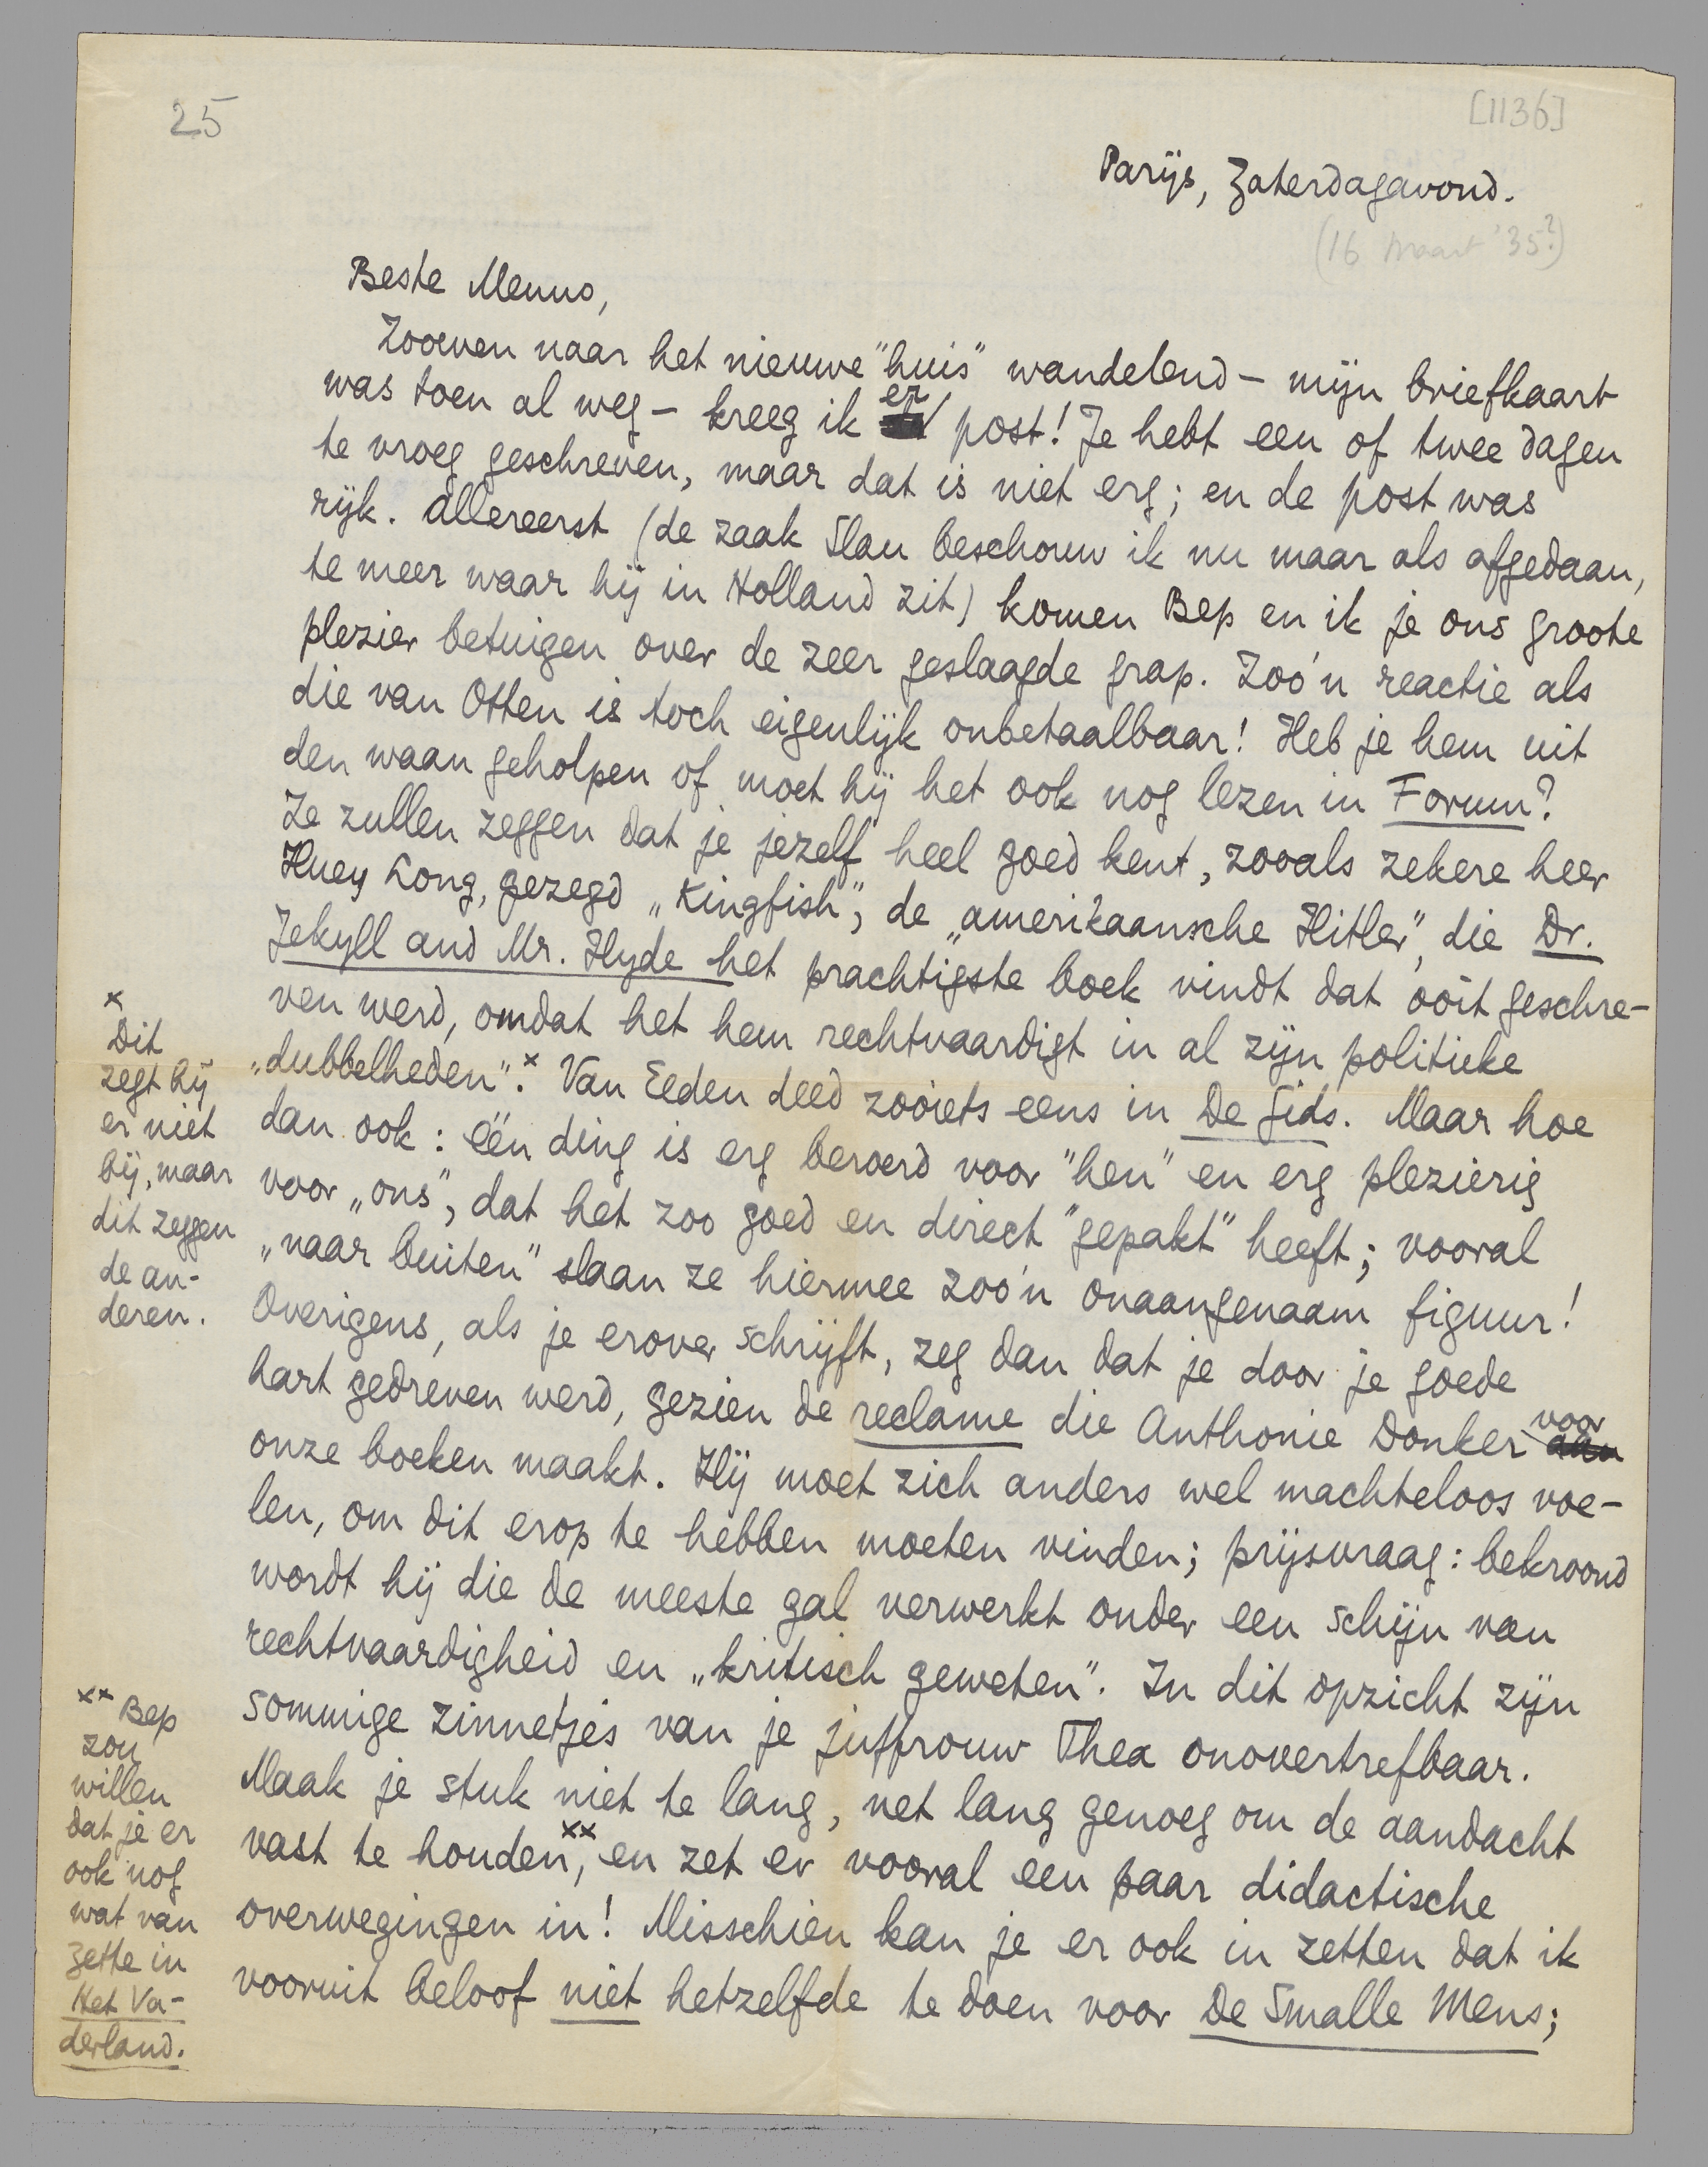 25
[1136]
Parijs, Zaterdagavond.
(16 maart '35?)
Beste Menno,
Zooeven naar het nieuwe "huis" wandelend – mijn briefkaart
was toen al weg – kreeg ik er post! Je hebt een of twee dagen
te vroeg geschreven, maar dat is niet erg; en de post was
rijk. Allereerst (de zaak Slau beschouw ik nu maar als afgedaan,
te meer waar hij in Holland zit) komen Bep en ik je ons groote
plezier betuigen over de zeer geslaagde grap. Zoo'n reactie als
die van Otten is toch eigenlijk onbetaalbaar! Heb je hem uit
den waan geholpen of moet hij het ook nog lezen in Forum?
Ze zullen zeggen dat je jezelf heel goed kent, zooals zekere heer
Huey Long, gezegd „Kingfish", de „amerikaansche Hitler", die Dr.
Jekyll and Mr. Hyde het prachtigste boek vindt dat ooit geschre-
ven werd, omdat het hem rechtvaardigt in al zijn politieke
„dubbelheden".x Van Eeden deed zooiets eens in De Gids. Maar hoe
dan ook: één ding is erg beroerd voor "hen" en erg plezierig
voor „ons", dat het zoo goed en direct "gepakt" heeft; vooral
„naar buiten" slaan ze hiermee zoo'n onaangenaam figuur!
Overigens, als je erover schrijft, zeg dan dat je door je goede
hart gedreven werd, gezien de reclame die Anthonie Donker voor
onze boeken maakt. Hij moet zich anders wel machteloos voe-
len, om dit erop te hebben moeten vinden; prijsvraag: bekroond
wordt hij die de meeste gal verwerkt onder een schijn van
rechtvaardigheid en „kritisch geweten". In dit opzicht zijn
sommige zinnetjes van je juffrouw Thea onovertrefbaar.
Maak je stuk niet te lang, net lang genoeg om de aandacht
vast te houden,xx en zet er vooral een paar didactische
overwegingen in! Misschien kan je er ook in zetten dat ik
vooruit beloof niet hetzelfde te doen voor De Smalle Mens;
x
Dit
zegt hij
er niet
bij, maar
dit zeggen
de an-
deren.
xx Bep
zou
willen
dat je er
ook nog
wat van
zette in
Het Va-
derland.